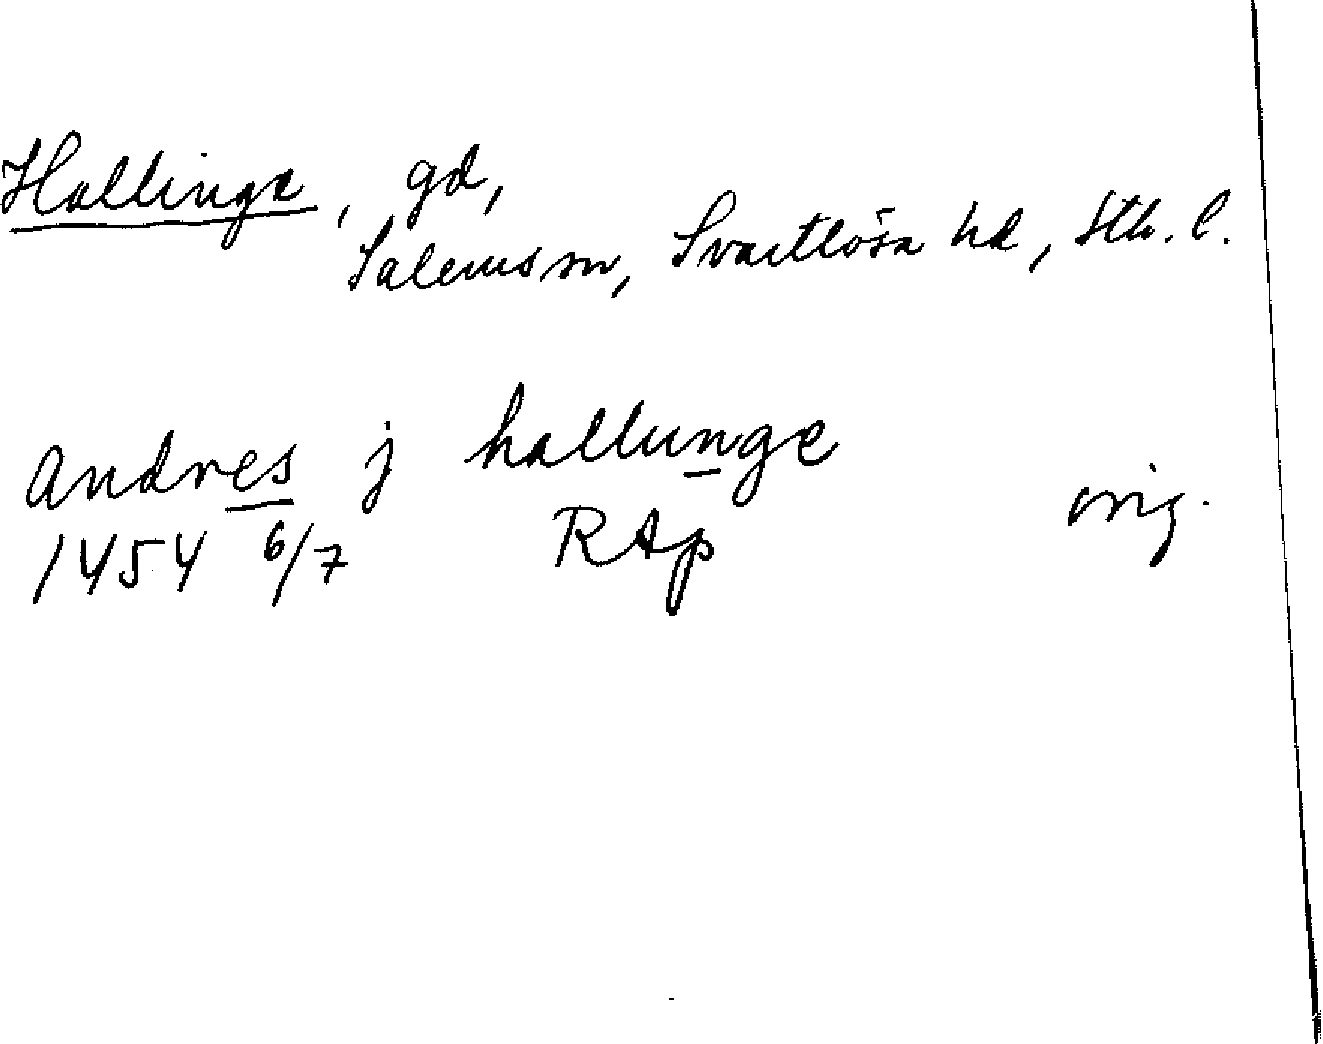 Hallinge, gd,
Salems sn, Svartlösa hd, Sth. l.
Andres j hallunge
1454 6/7 RAp orig.